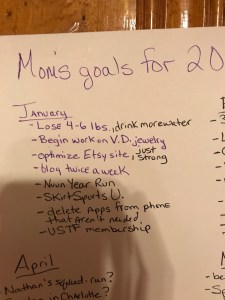 Mom's goals for 20
January
- Lose 4-6 lbs., drink more water
- Begin work on V.D. jewelry
- optimize Etsy site, just strong
- blog twice a week
- Noon Year Run
- SkirtSports U.
- delete Apps from phone
that aren't needed
- USTF membership
April
Nathan's squad. run?
in Charlotte?